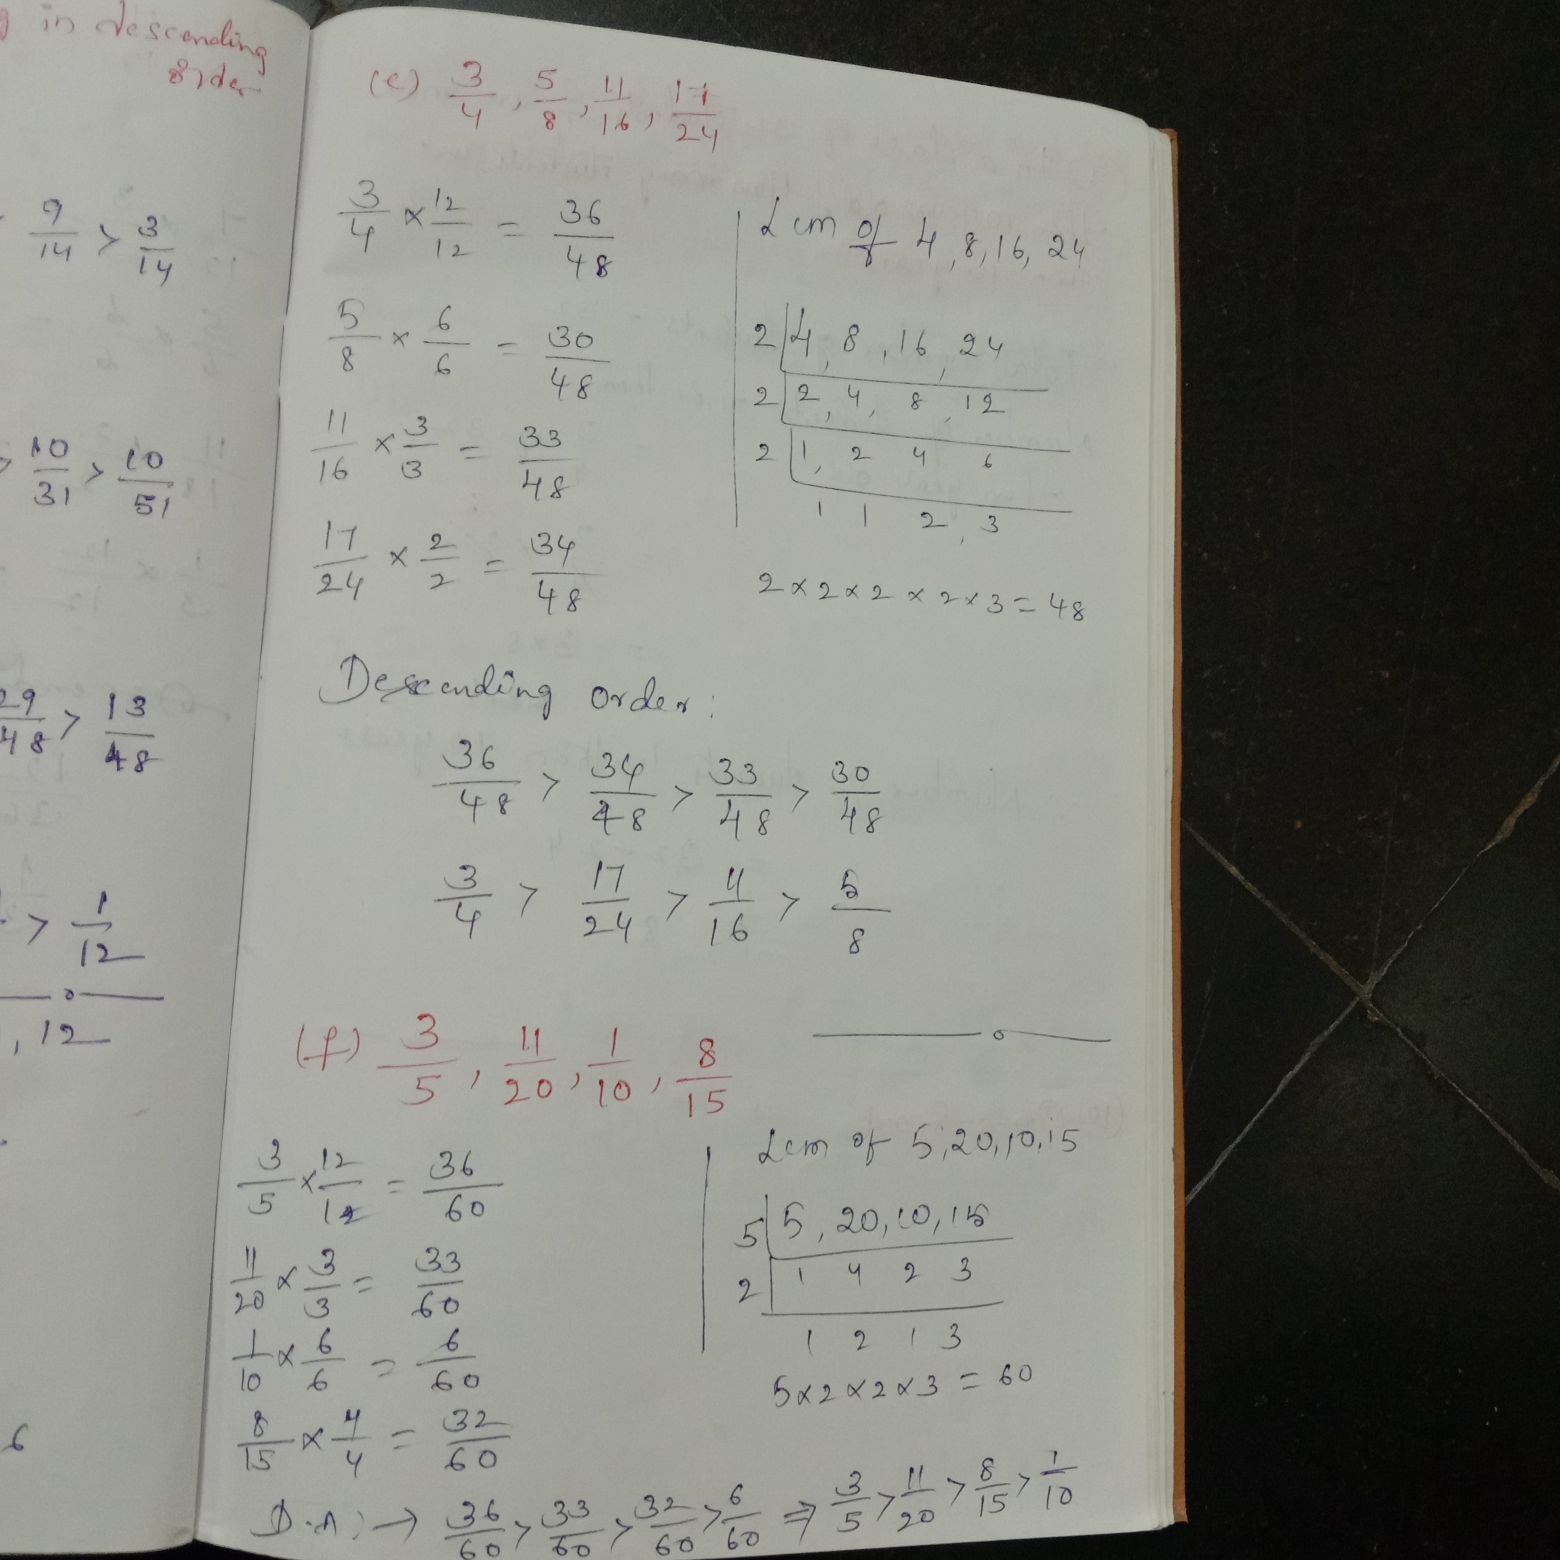 in descending
order
9/14 > 3/14
> 10/31 > 10/51
29/48 > 13/48
> 1/12
, 12
6
(e) 3/4, 5/8, 11/16, 17/24
3/4 × 12/12 = 36/48
5/8 × 6/6 = 30/48
11/16 × 3/3 = 33/48
17/24 × 2/2 = 34/48
Lcm of 4, 8, 16, 24
2 | 4, 8, 16, 24
2 | 2, 4, 8, 12
2 | 1, 2 4 6
1 1 2, 3
2 × 2 × 2 × 2 × 3 = 48
Descending order:
36/48 > 34/48 > 33/48 > 30/48
3/4 > 17/24 > 11/16 > 5/8
(f) 3/5, 11/20, 1/10, 8/15
3/5 × 12/12 = 36/60
11/20 × 3/3 = 33/60
1/10 × 6/6 = 6/60
8/15 × 4/4 = 32/60
Lcm of 5, 20, 10, 15
5 | 5, 20, 10, 15
2 | 1 4 2 3
1 2 1 3
5 × 2 × 2 × 3 = 60
→ 36/60 > 33/60 > 32/60 > 6/60 ⇒ 3/5 > 11/20 > 8/15 > 1/10